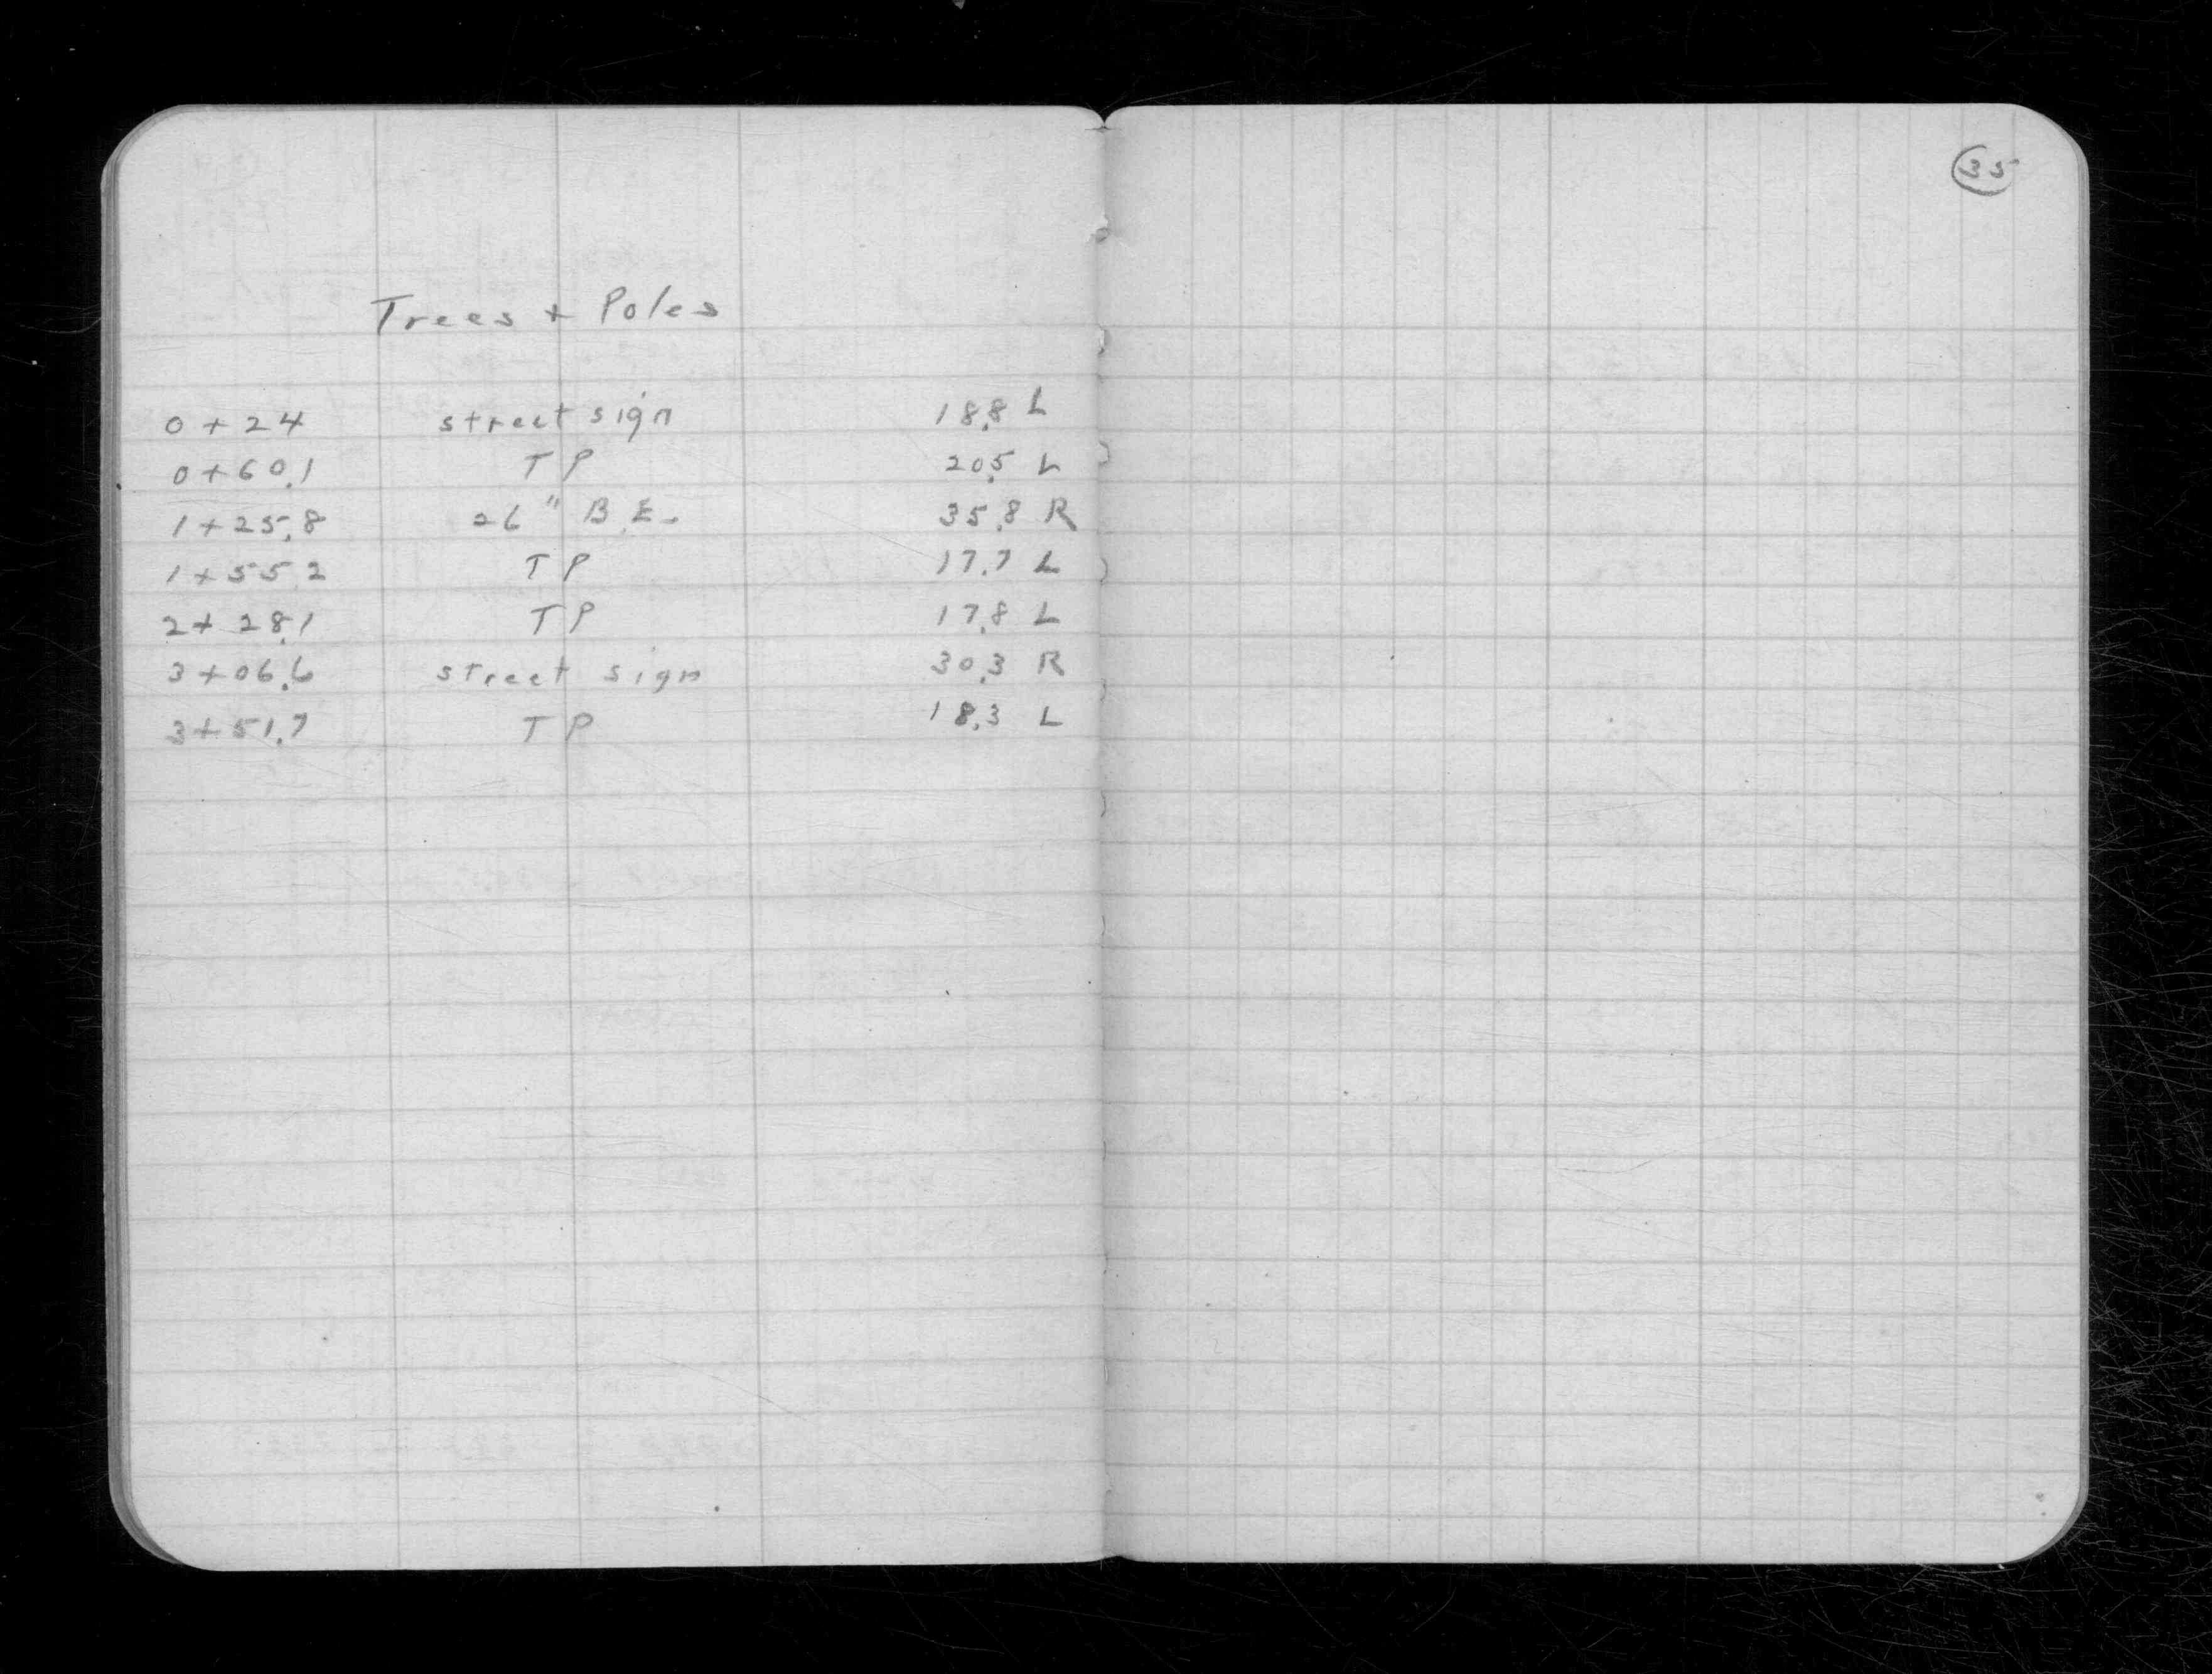 35
Trees + Poles
0+24 street sign 18.8 L
0+60.1 TP 20.5 L
1+25.8 26" B.E. 35.8 R
1+55.2 TP 17.7 L
2+28.1 TP 17.8 L
3+06.6 street sign 30.3 R
3+51.7 TP 18.3 L